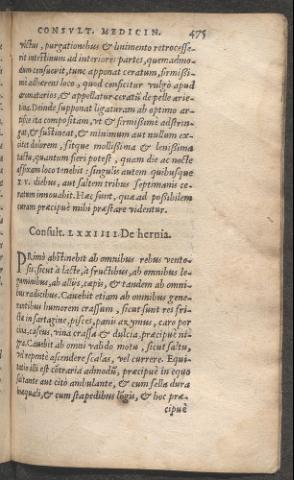 CONSVLT. MEDICIN. 475
victus, purgationebus & linimento retrocesse-
rit intestinum ad interiores partes, quemadmo-
dum consuevit, tunc apponat ceratum, firmissi-
mè adhærens loco, quod conficitur vulgò apud
aromatarios, & appellatur ceratũ de pelle arie-
tina. Deinde supponat ligaturam ab optimo ar-
tifice ita compositam, vt & firmissimè adstrin-
gat, & sustineat, & minimum aut nullum ex-
citet dolorem, sitque mollissima & lenissima
tactu, quantum fieri potest, quam die ac nocte
affixam loco tenebit: singulis autem quibusque
XV. diebus, aut saltem tribus septimanis ce-
ratum innouabit. Hæc sunt, quæ ad possibilem
curam præcipuè mihi præstare videntur.
Consult. LXXIIII De hernia.
PRimò abstinebit ab omnibus rebus vento-
sis, sicut à lacte, à fructibus, ab omnibus le-
guminibus, ab allijs, cæpis, & tandem ab omni-
bus radicibus. Cauebit etiam ab omnibus gene-
rantibus humorem crassum, sicut sunt res fri-
ctæ in sartagine, pisces, panis azymus, caro por
cina, caseus, vina crassa & dulcia, præcipuè ni-
gra. Cauebit ab omni valido motu, sicut saltu,
vel repentè ascendere scalas, vel currere. Equi-
tatio illi est cõtraria admodũ, præcipuè in equo
saltante aut citò ambulante, & cum sella dura
inæquali, & cum stapedibus lõgis, & hoc præ-
cipuè